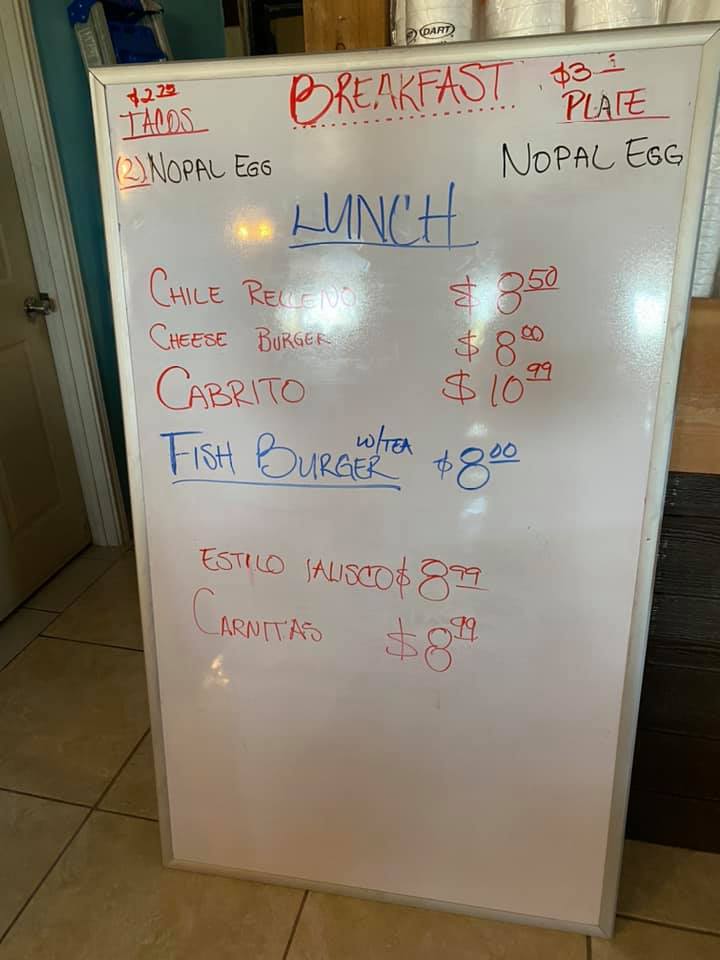 DART
$2.25 BREAKFAST $3
TACOS PLATE
(2) NOPAL EGG NOPAL EGG
LUNCH
CHILE RELLENO $8.50
CHEESE BURGER $8.00
CABRITO $10.99
FISH BURGER W/TEA $8.00
ESTILO JALISCO $8.99
CARNITAS $8.99